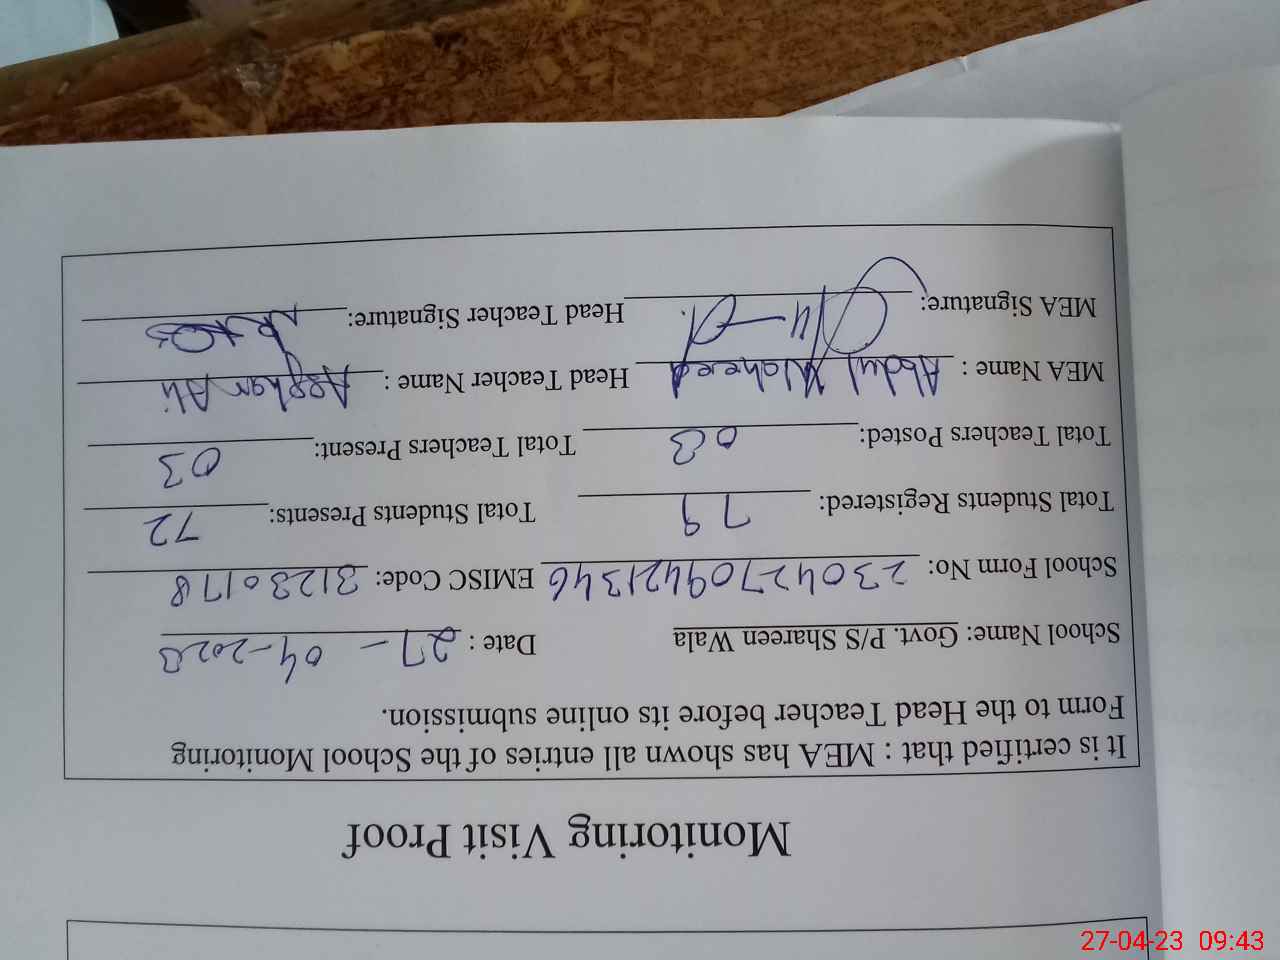 Monitoring Visit Proof
It is certified that : MEA has shown all entries of the School Monitoring
Form to the Head Teacher before its online submission.
School Name: Govt. P/S Shareen Wala Date : 27-04-2023
School Form No: 230427094421346 EMISC Code: 31230178
Total Students Registered: 79 Total Students Presents: 72
Total Teachers Posted: 03 Total Teachers Present: 03
MEA Name : Abdul Waheed Head Teacher Name : Asghar Ali
MEA Signature: Head Teacher Signature:
27-04-23 09:43